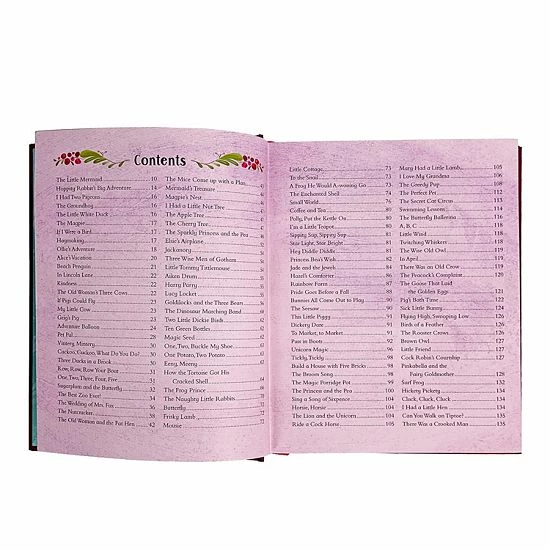 Contents
The Little Mermaid 10
Hoppity Rabbit's Big Adventure 14
I Had Two Popcorns 16
The Groundhog 16
The Little White Duck 16
The Magpie 17
If I Were a Bird 17
Haymaking 17
Ollie's Adventure 18
Alice's Vacation 20
Beach Penguin 21
In Lincoln Lane 22
Kindness 22
The Old Woman's Three Cows 22
If Pigs Could Fly 23
My Little Cow 23
Grig's Pig 23
Adventure Balloon 24
Pet Pal 28
Wintery, Mintery
Cuckoo, Cuckoo, What Do You Do? 30
Three Ducks in a Brook 30
Row, Row, Row Your Boat 31
One, Two, Three, Four, Five 31
Sugarplum and the Butterfly 32
The Best Zoo Ever! 34
The Wedding of Mrs. Fox 36
The Nutcracker
The Old Woman and the Pot Hen 42
The Mice Come up with a Plan
Mermaid's Treasure
Magpie's Nest
I Had a Little Nut Tree
The Apple Tree
The Cherry Tree
The Sparkly Princess and the Pea
Elsie's Airplane
Jackanory
Three Wise Men of Gotham
Little Tommy Tittlemouse
Aiken Drum
Harry Parry
Lucy Locket
Goldilocks and the Three Bears
The Dinosaur Marching Band
Two Little Dickie Birds
Ten Green Bottles
Magic Seed
One, Two, Buckle My Shoe
One Potato, Two Potato
Eeny, Meeny
How the Tortoise Got His
Cracked Shell 64
The Frog Prince
The Naughty Little Rabbits
Butterfly
Frisky Lamb
Mouse 72
Little Cottage 73
To the Snail 73
A Frog He Would A-wooing Go 73
The Enchanted Shell 74
Small World 76
Coffee and Tea 80
Polly, Put the Kettle On 80
I'm a Little Teapot 80
Sippity Sup, Sippity Sup 81
Star Light, Star Bright 81
Hey Diddle Diddle 81
Princess Bea's Wish
Jade and the Jewels 84
Hazel's Comforter
Rainbow Farm 87
Pride Goes Before a Fall 88
Bunnies All Come Out to Play 90
The Seesaw 90
This Little Piggy 91
Dickery Dare 91
To Market, to Market 91
Puss in Boots 92
Unicorn Magic 96
Tickly, Tickly 98
Build a House with Five Bricks 98
The Broom Song 98
The Magic Porridge Pot 99
The Princess and the Pea 100
Sing a Song of Sixpence 104
Horsie, Horsie 104
The Lion and the Unicorn 104
Ride a Cock Horse 105
Mary Had a Little Lamb 105
I Love My Grandma 106
The Greedy Pup 108
The Perfect Pet 112
The Secret Cat Circus 113
Swimming Lessons 114
The Butterfly Ballerina 116
A, B, C 118
Little Wind 118
Twitching Whiskers 118
The Wise Old Owl 119
In April 119
There Was an Old Crow 119
The Peacock's Complaint 120
The Goose That Laid
the Golden Eggs 121
Pig's Bath Time 122
Sick Little Bunny 124
Flying High, Swooping Low 126
Birds of a Feather 126
The Rooster Crows 126
Brown Owl 127
Little Friend 127
Cock Robin's Courtship 127
Pinkabella and the
Fairy Goldmother 128
Surf Frog 132
Hickety Pickety 134
Cluck, Cluck, Cluck 134
I Had a Little Hen 134
Can You Walk on Tiptoe? 135
There Was a Crooked Man 135